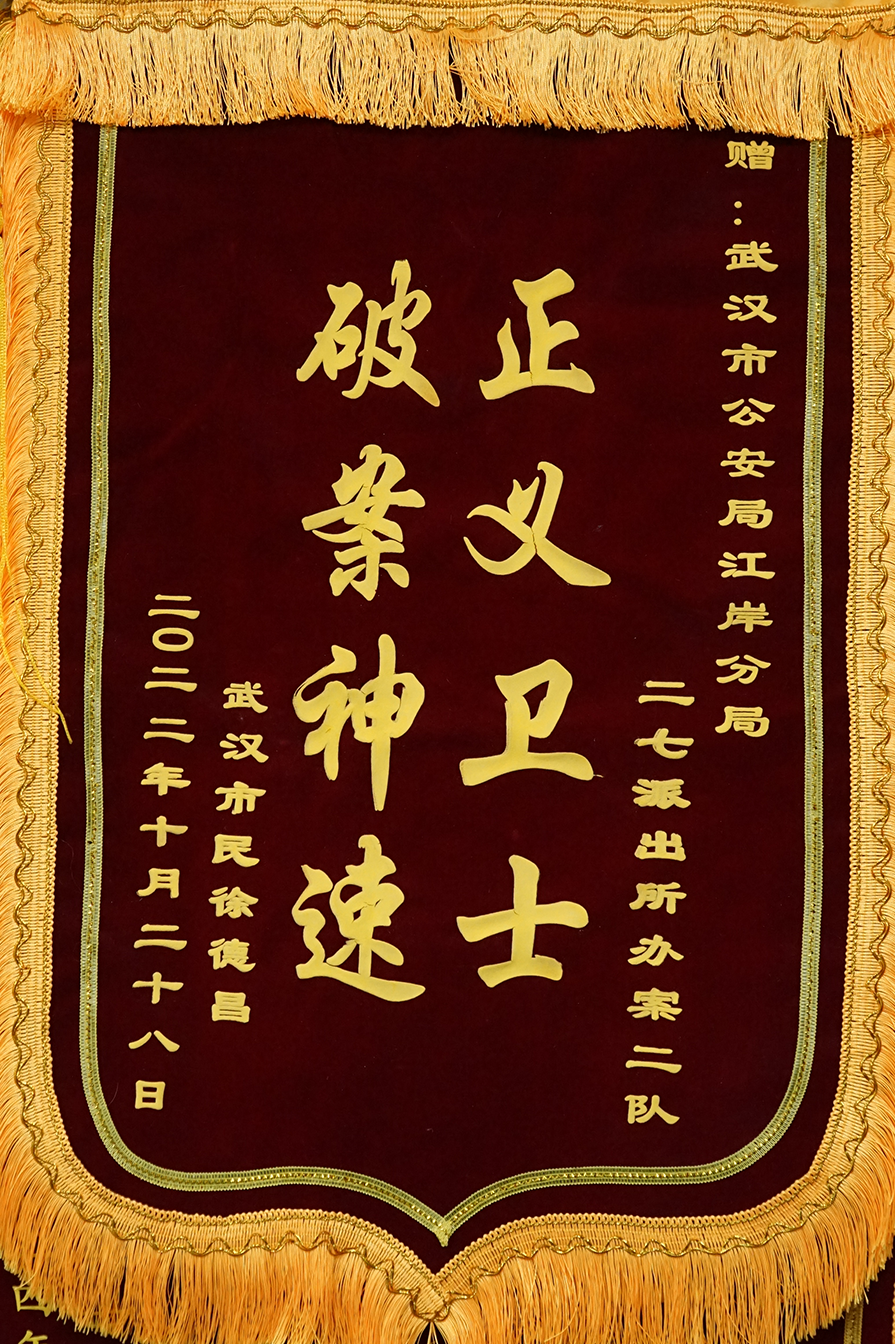 赠：武汉市公安局江岸分局
二七派出所办案二队
正义卫士
破案神速
武汉市民徐德昌
二〇二二年十月二十八日